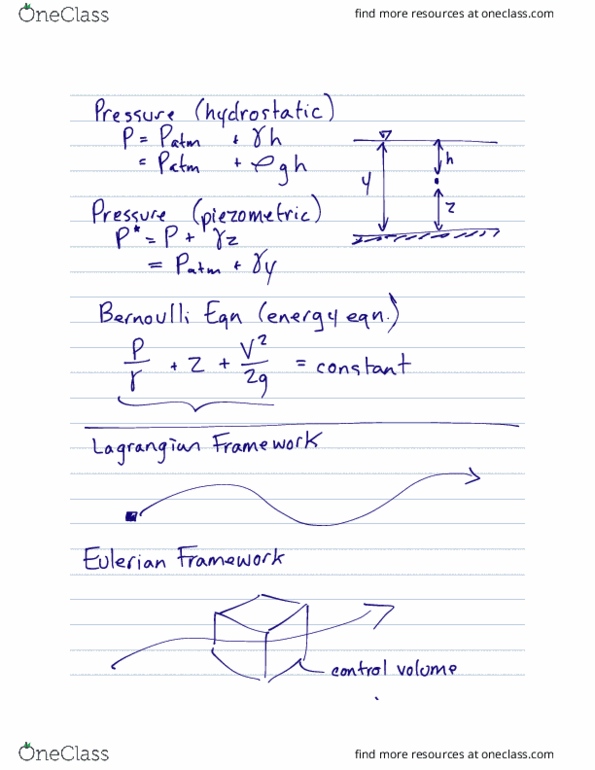 OneClass
find more resources at oneclass.com
Pressure (hydrostatic)
P = Patm + γh
= Patm + ρgh
h
y
z
Pressure (piezometric)
P* = P + γz
= Patm + γy
Bernoulli Eqn (energy eqn.)
P/γ + z + V²/2g = constant
Lagrangian Framework
Eulerian Framework
control volume
OneClass
find more resources at oneclass.com